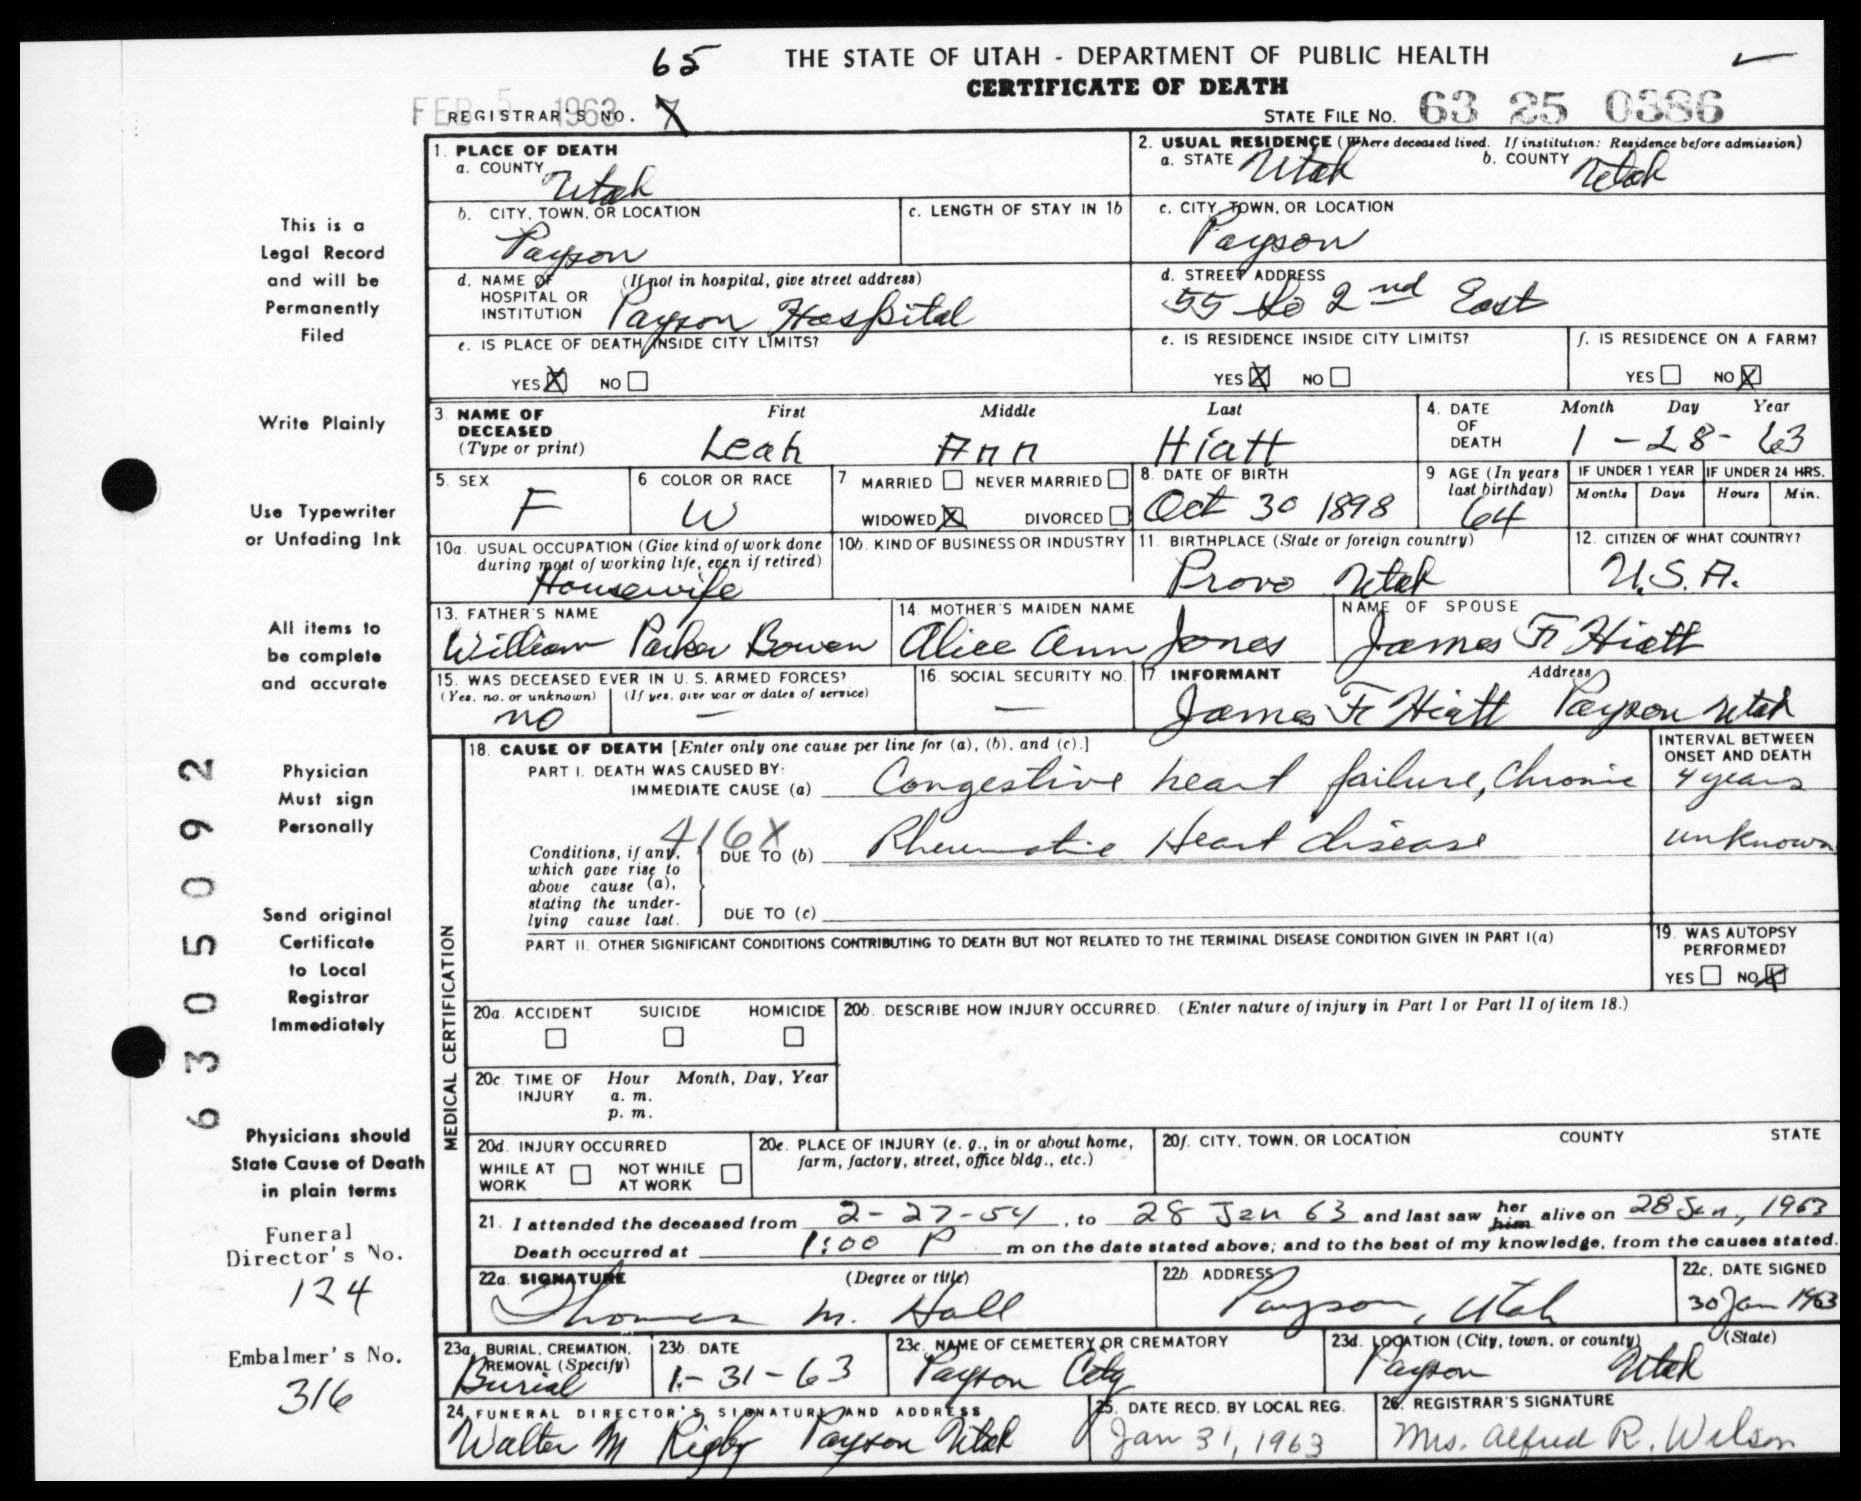 65 THE STATE OF UTAH - DEPARTMENT OF PUBLIC HEALTH
CERTIFICATE OF DEATH
FEB 5 1963
REGISTRAR'S NO. 7
STATE FILE NO. 63 25 0386
This is a
Legal Record
and will be
Permanently
Filed
Write Plainly
Use Typewriter
or Unfading Ink
All items to
be complete
and accurate
Physician
Must sign
Personally
Send original
Certificate
to Local
Registrar
Immediately
Physicians should
State Cause of Death
in plain terms
Funeral
Director's No.
124
Embalmer's No.
316
6305092
1. PLACE OF DEATH
a. COUNTY
Utah
2. USUAL RESIDENCE (Where deceased lived. If institution: Residence before admission)
a. STATE Utah b. COUNTY Utah
b. CITY, TOWN, OR LOCATION
Payson
c. LENGTH OF STAY IN 1b
c. CITY, TOWN, OR LOCATION
Payson
d. NAME OF (If not in hospital, give street address)
HOSPITAL OR
INSTITUTION Payson Hospital
d. STREET ADDRESS
55 So 2nd East
e. IS PLACE OF DEATH INSIDE CITY LIMITS?
YES X NO
e. IS RESIDENCE INSIDE CITY LIMITS?
YES X NO
f. IS RESIDENCE ON A FARM?
YES NO X
3. NAME OF First Middle Last
DECEASED
(Type or print) Leah Ann Hiatt
4. DATE Month Day Year
OF
DEATH 1-28-63
5. SEX
F
6 COLOR OR RACE
W
7 MARRIED NEVER MARRIED
WIDOWED X DIVORCED
8. DATE OF BIRTH
Oct 30 1898
9 AGE (In years
last birthday)
64
IF UNDER 1 YEAR IF UNDER 24 HRS.
Months Days Hours Min.
10a. USUAL OCCUPATION (Give kind of work done
during most of working life, even if retired)
Housewife
10b. KIND OF BUSINESS OR INDUSTRY
11. BIRTHPLACE (State or foreign country)
Provo Utah
12. CITIZEN OF WHAT COUNTRY?
U.S.A.
13. FATHER'S NAME
William Parker Bowen
14. MOTHER'S MAIDEN NAME
Alice Ann Jones
NAME OF SPOUSE
James Fr Hiatt
15. WAS DECEASED EVER IN U. S. ARMED FORCES?
(Yes, no, or unknown) (If yes, give war or dates of service)
no —
16. SOCIAL SECURITY NO.
—
17. INFORMANT Address
James Fr Hiatt Payson Utah
MEDICAL CERTIFICATION
18. CAUSE OF DEATH [Enter only one cause per line for (a), (b), and (c).]
INTERVAL BETWEEN
ONSET AND DEATH
PART I. DEATH WAS CAUSED BY:
IMMEDIATE CAUSE (a) Congestive heart failure, Chronic 4 years
416X
Conditions, if any,
which gave rise to
above cause (a),
stating the under-
lying cause last.
DUE TO (b) Rheumatic Heart disease unknown
DUE TO (c)
PART II. OTHER SIGNIFICANT CONDITIONS CONTRIBUTING TO DEATH BUT NOT RELATED TO THE TERMINAL DISEASE CONDITION GIVEN IN PART I(a)
19. WAS AUTOPSY
PERFORMED?
YES NO X
20a. ACCIDENT SUICIDE HOMICIDE
20b. DESCRIBE HOW INJURY OCCURRED. (Enter nature of injury in Part I or Part II of item 18.)
20c. TIME OF Hour Month, Day, Year
INJURY a. m.
p. m.
20d. INJURY OCCURRED
WHILE AT NOT WHILE
WORK AT WORK
20e. PLACE OF INJURY (e. g., in or about home,
farm, factory, street, office bldg., etc.)
20f. CITY, TOWN, OR LOCATION COUNTY STATE
21. I attended the deceased from 2-27-54, to 28 Jan 63 and last saw her him alive on 28 Jan, 1963
Death occurred at 1:00 P m on the date stated above; and to the best of my knowledge, from the causes stated.
22a. SIGNATURE (Degree or title)
Thomas M. Hall
22b. ADDRESS
Payson, Utah
22c. DATE SIGNED
30 Jan 1963
23a. BURIAL, CREMATION,
REMOVAL (Specify)
Burial
23b. DATE
1-31-63
23c. NAME OF CEMETERY OR CREMATORY
Payson City
23d. LOCATION (City, town, or county) (State)
Payson Utah
24. FUNERAL DIRECTOR'S SIGNATURE AND ADDRESS
Walter M Rigby Payson Utah
25. DATE RECD. BY LOCAL REG.
Jan 31, 1963
26. REGISTRAR'S SIGNATURE
Mrs. Alfred R. Wilson